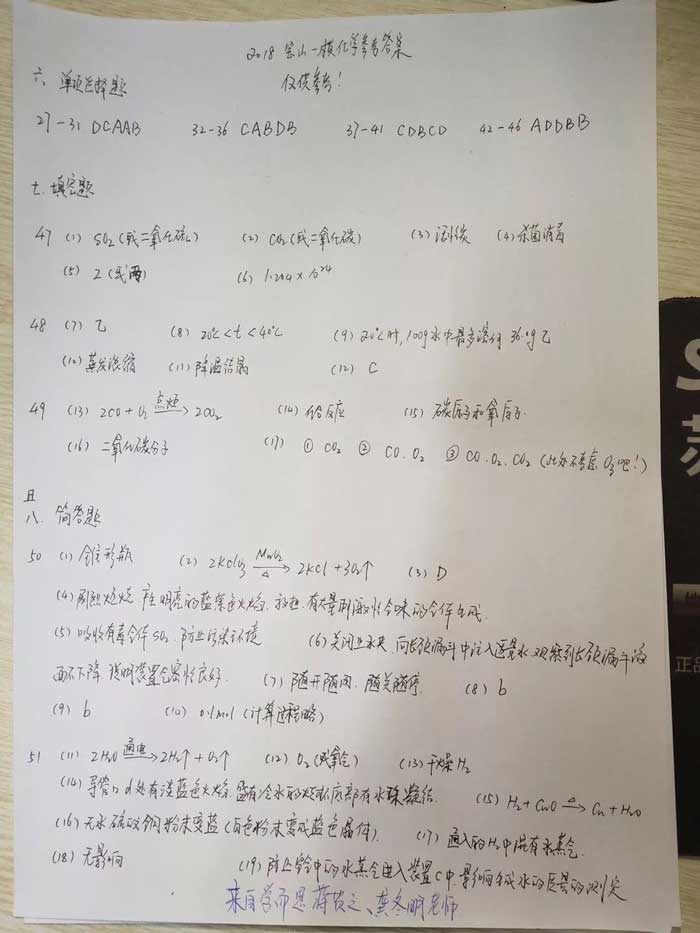 2018 金山一模化学参考答案
仅供参考!
六、单项选择题
27-31 DCAAB 32-36 CABDB 37-41 CDBCD 42-46 ADDBB
七. 填空题
47 (1) SO₂ (或二氧化硫) (2) CO₂ (或二氧化碳) (3) 活性炭 (4) 杀菌消毒
(5) 2 (或两) (6) 1.204 × 10²⁴
48 (7) 乙 (8) 20℃ < t < 40℃ (9) 20℃时, 100g水中最多溶解 36.0g乙
(10) 蒸发浓缩 (11) 降温结晶 (12) C
49 (13) 2CO + O₂ 点燃→ 2CO₂ (14) 化合反应 (15) 碳原子和氧原子.
(16) 二氧化碳分子 (17) ① CO₂ ② CO、O₂ ③ CO、O₂、CO₂ (此处不考虑 O₃吧!)
八. 简答题
50 (1) 锥形瓶 (2) 2KClO₃ MnO₂ △→ 2KCl + 3O₂↑ (3) D
(4) 剧烈燃烧. 产生明亮的蓝紫色火焰. 放热. 有大量刺激性气味的气体生成.
(5) 吸收有毒气体 SO₂, 防止污染环境 (6) 关闭止水夹, 向长颈漏斗中注入适量水, 观察到长颈漏斗液
面不下降, 说明装置气密性良好. (7) 随开随用, 随关随停. (8) b
(9) b (10) 0.1mol (计算过程略)
51 (11) 2H₂O 通电→ 2H₂↑ + O₂↑ (12) O₂ (或氧气) (13) 干燥 H₂
(14) 导管口 d 处有淡蓝色火焰. 盛有冷水的烧杯底部有水珠凝结. (15) H₂ + CuO △→ Cu + H₂O
(16) 无水硫酸铜粉末变蓝 (白色粉末变成蓝色晶体). (17) 通入的H₂中混有水蒸气.
(18) 无影响 (19) 防止空气中的水蒸气进入装置C中. 影响生成水的质量的测定
来自学而思 龚冬明老师
S